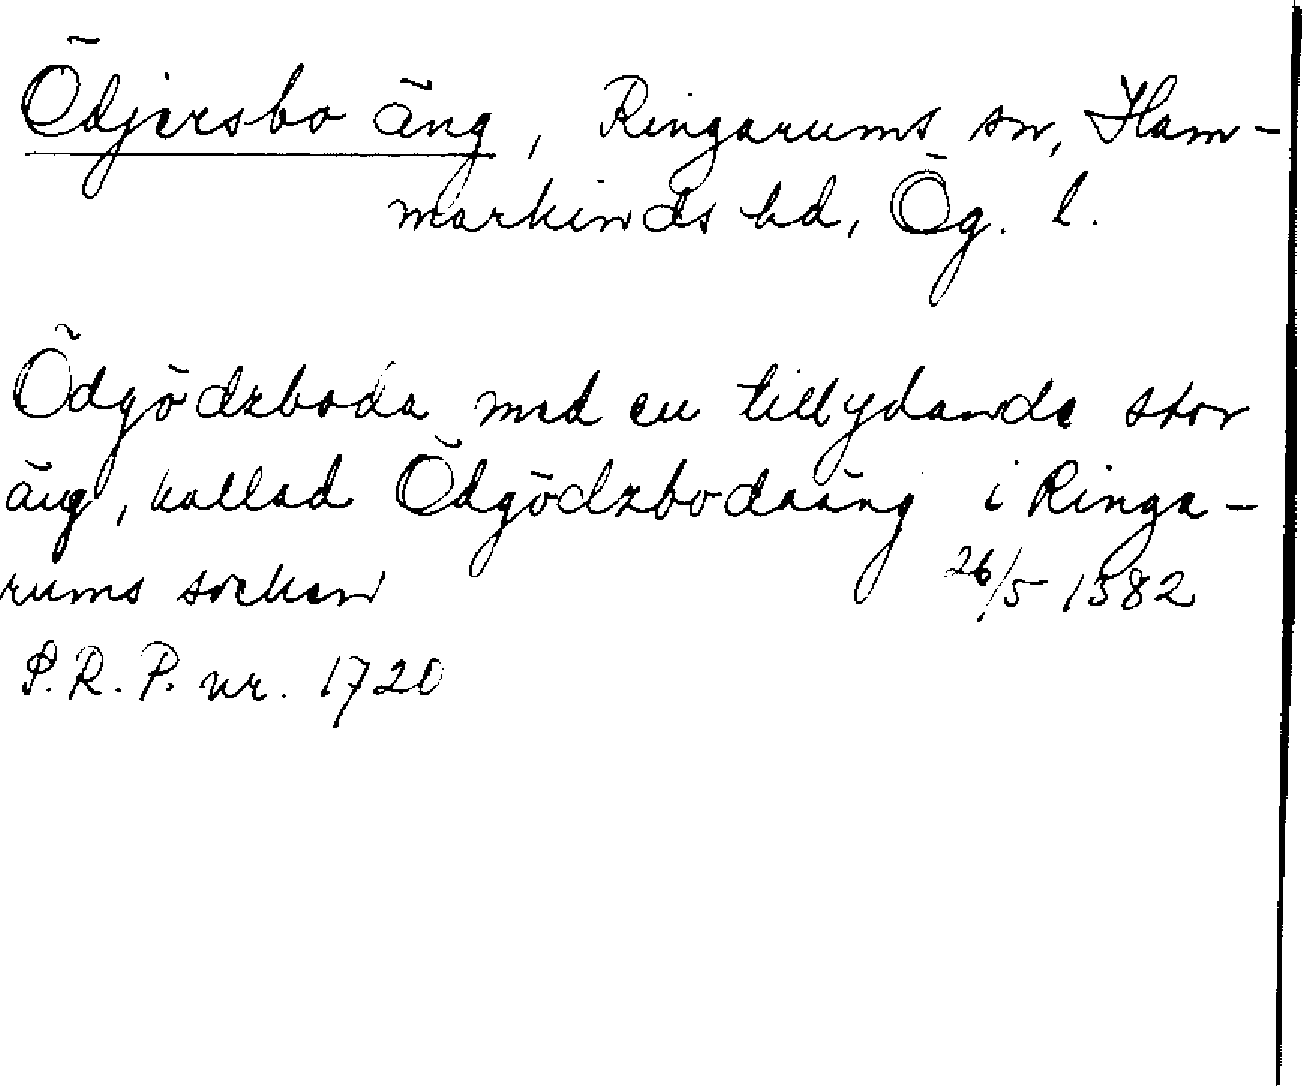 Ödjersbo äng, Ringarums sn, Ham-
markinds hd, Ög. l.
Ödgödzboda med en tillydande stor
äng, kallad Ödgödzbodaäng i Ringa-
rums socken 26/5 1382
S.R.P. nr. 1720